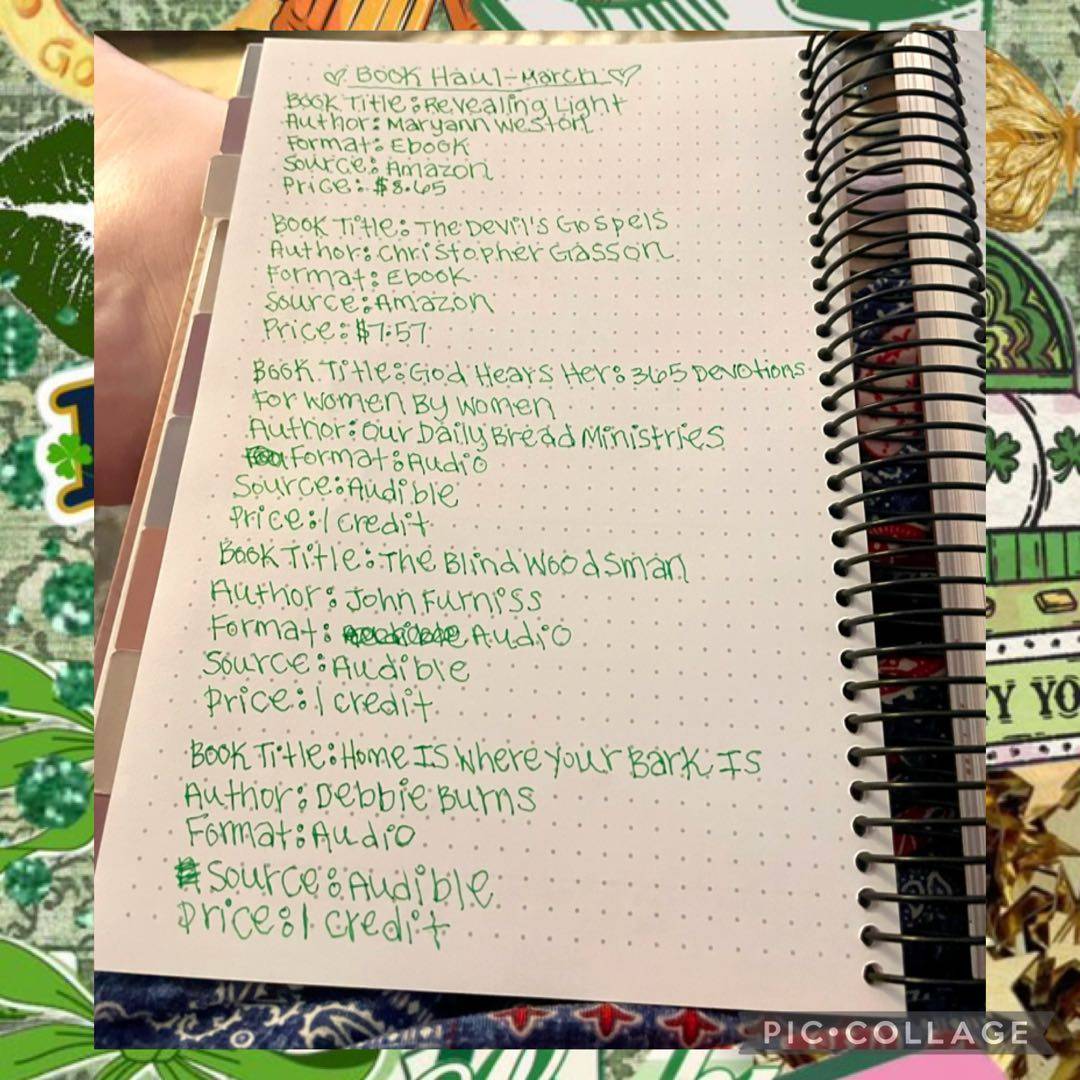 GO
♡ Book Haul-March ♡
Book Title: Revealing Light
Author: Maryann Weston
Format: Ebook
Source: Amazon
Price: $8.65
Book Title: The Devil's Gospels
Author: Christopher Gasson
Format: Ebook
Source: Amazon
Price: $7.57
Book Title: God Hears Her: 365 Devotions
For Women By Women
Author: Our Daily Bread Ministries
Format: Audio
Source: Audible
Price: 1 credit
Book Title: The Blind Woodsman
Author: John Furniss
Format: Audio
Source: Audible
Price: 1 credit
Book Title: Home Is Where Your Bark Is
Author: Debbie Burns
Format: Audio
Source: Audible
Price: 1 credit
Y YO
PIC•COLLAGE